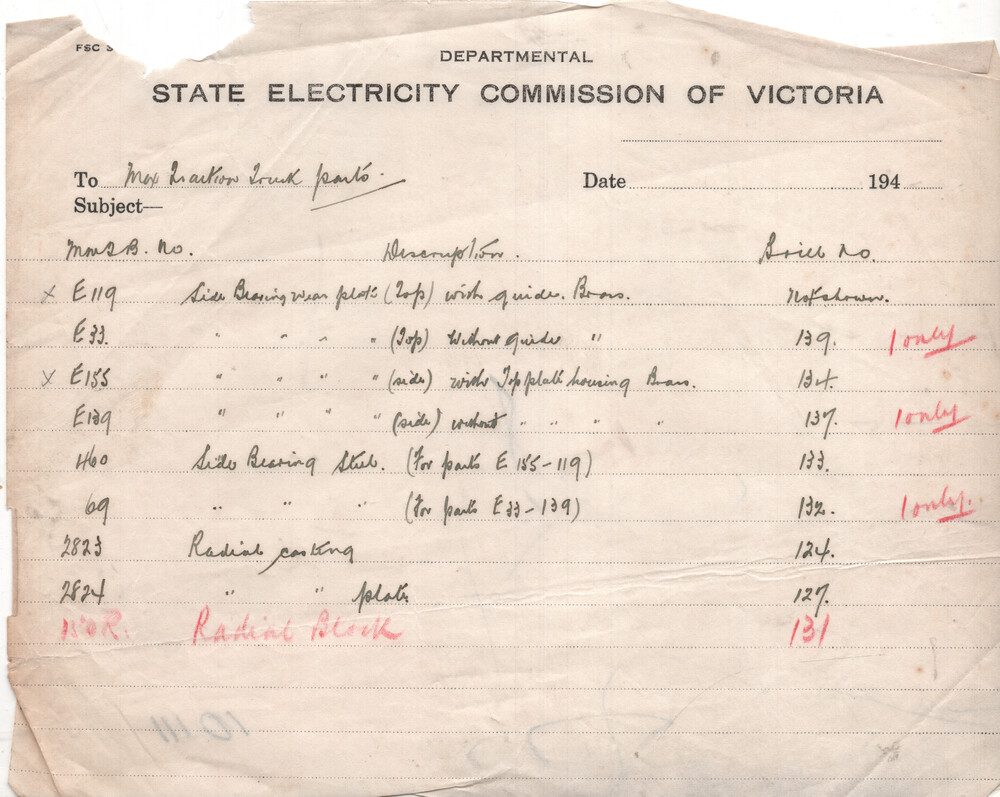 FSC
DEPARTMENTAL
STATE ELECTRICITY COMMISSION OF VICTORIA
To Max Traction Truck parts.
Date 194
Subject—
M&MTB. No. Description. Brill No.
x E119 Side Bearing wear plate (Top) with guide. Brass. Not shown.
E33. " " " " (Top) without guide " 139. 1 only
x E155 " " " " (side) with Top plate housing Brass. 134.
E139 " " " " (side) without " " " " 137. 1 only
460 Side Bearing Steel. (For parts E 155-119) 133.
69 " " " (For parts E33-139) 132. 1 only.
2823 Radial casting 124.
2824 " " plate 127.
Radial Block 131